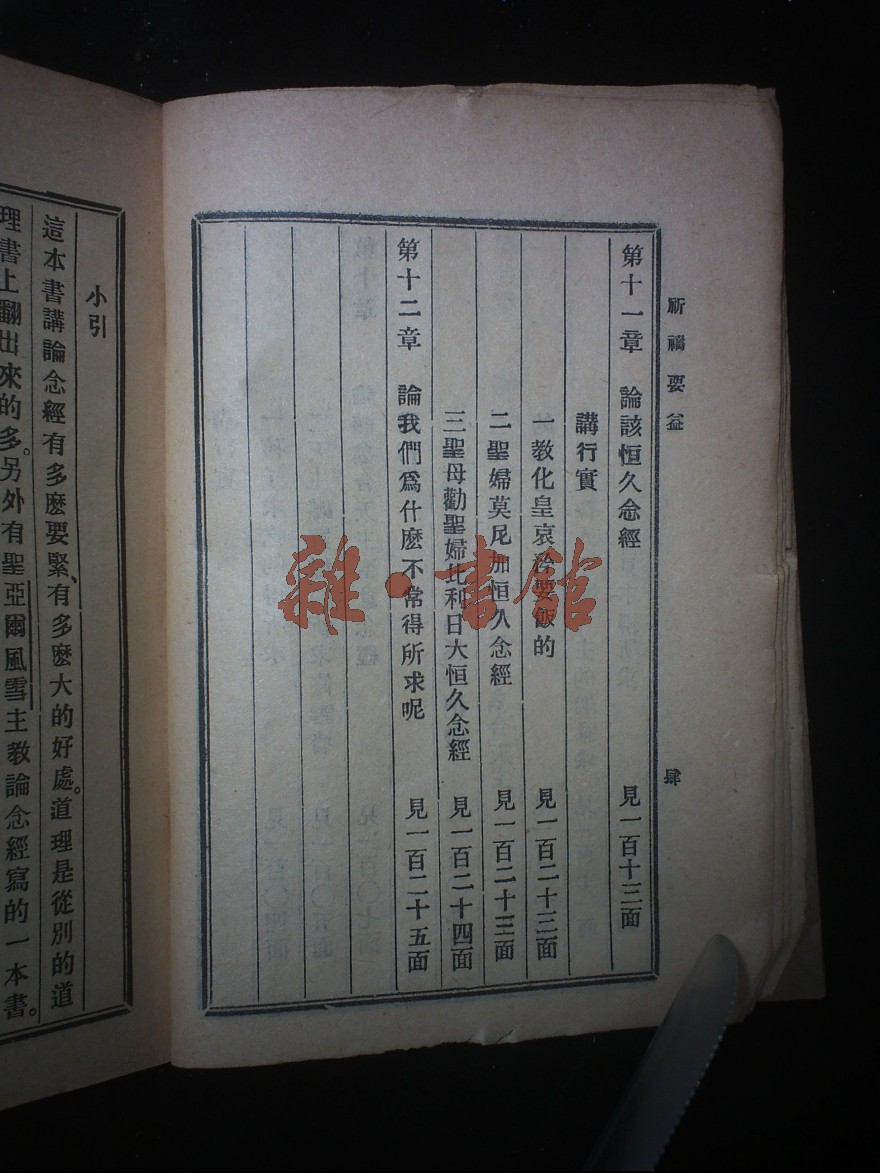 祈禱要益
肆
第十一章 論該恒久念經 見一百十三面
講行實
一教化皇哀矜要飯的 見一百二十三面
二聖婦莫尼加恒久念經 見一百二十三面
三聖母勸聖婦比利日大恒久念經 見一百二十四面
第十二章 論我們爲什麽不常得所求呢 見一百二十五面
小引
這本書講論念經有多麽要緊、有多麽大的好處。道理是從別的道
理書上翻出來的多。另外有聖亞爾風雪主教論念經寫的一本書。
雜·書館